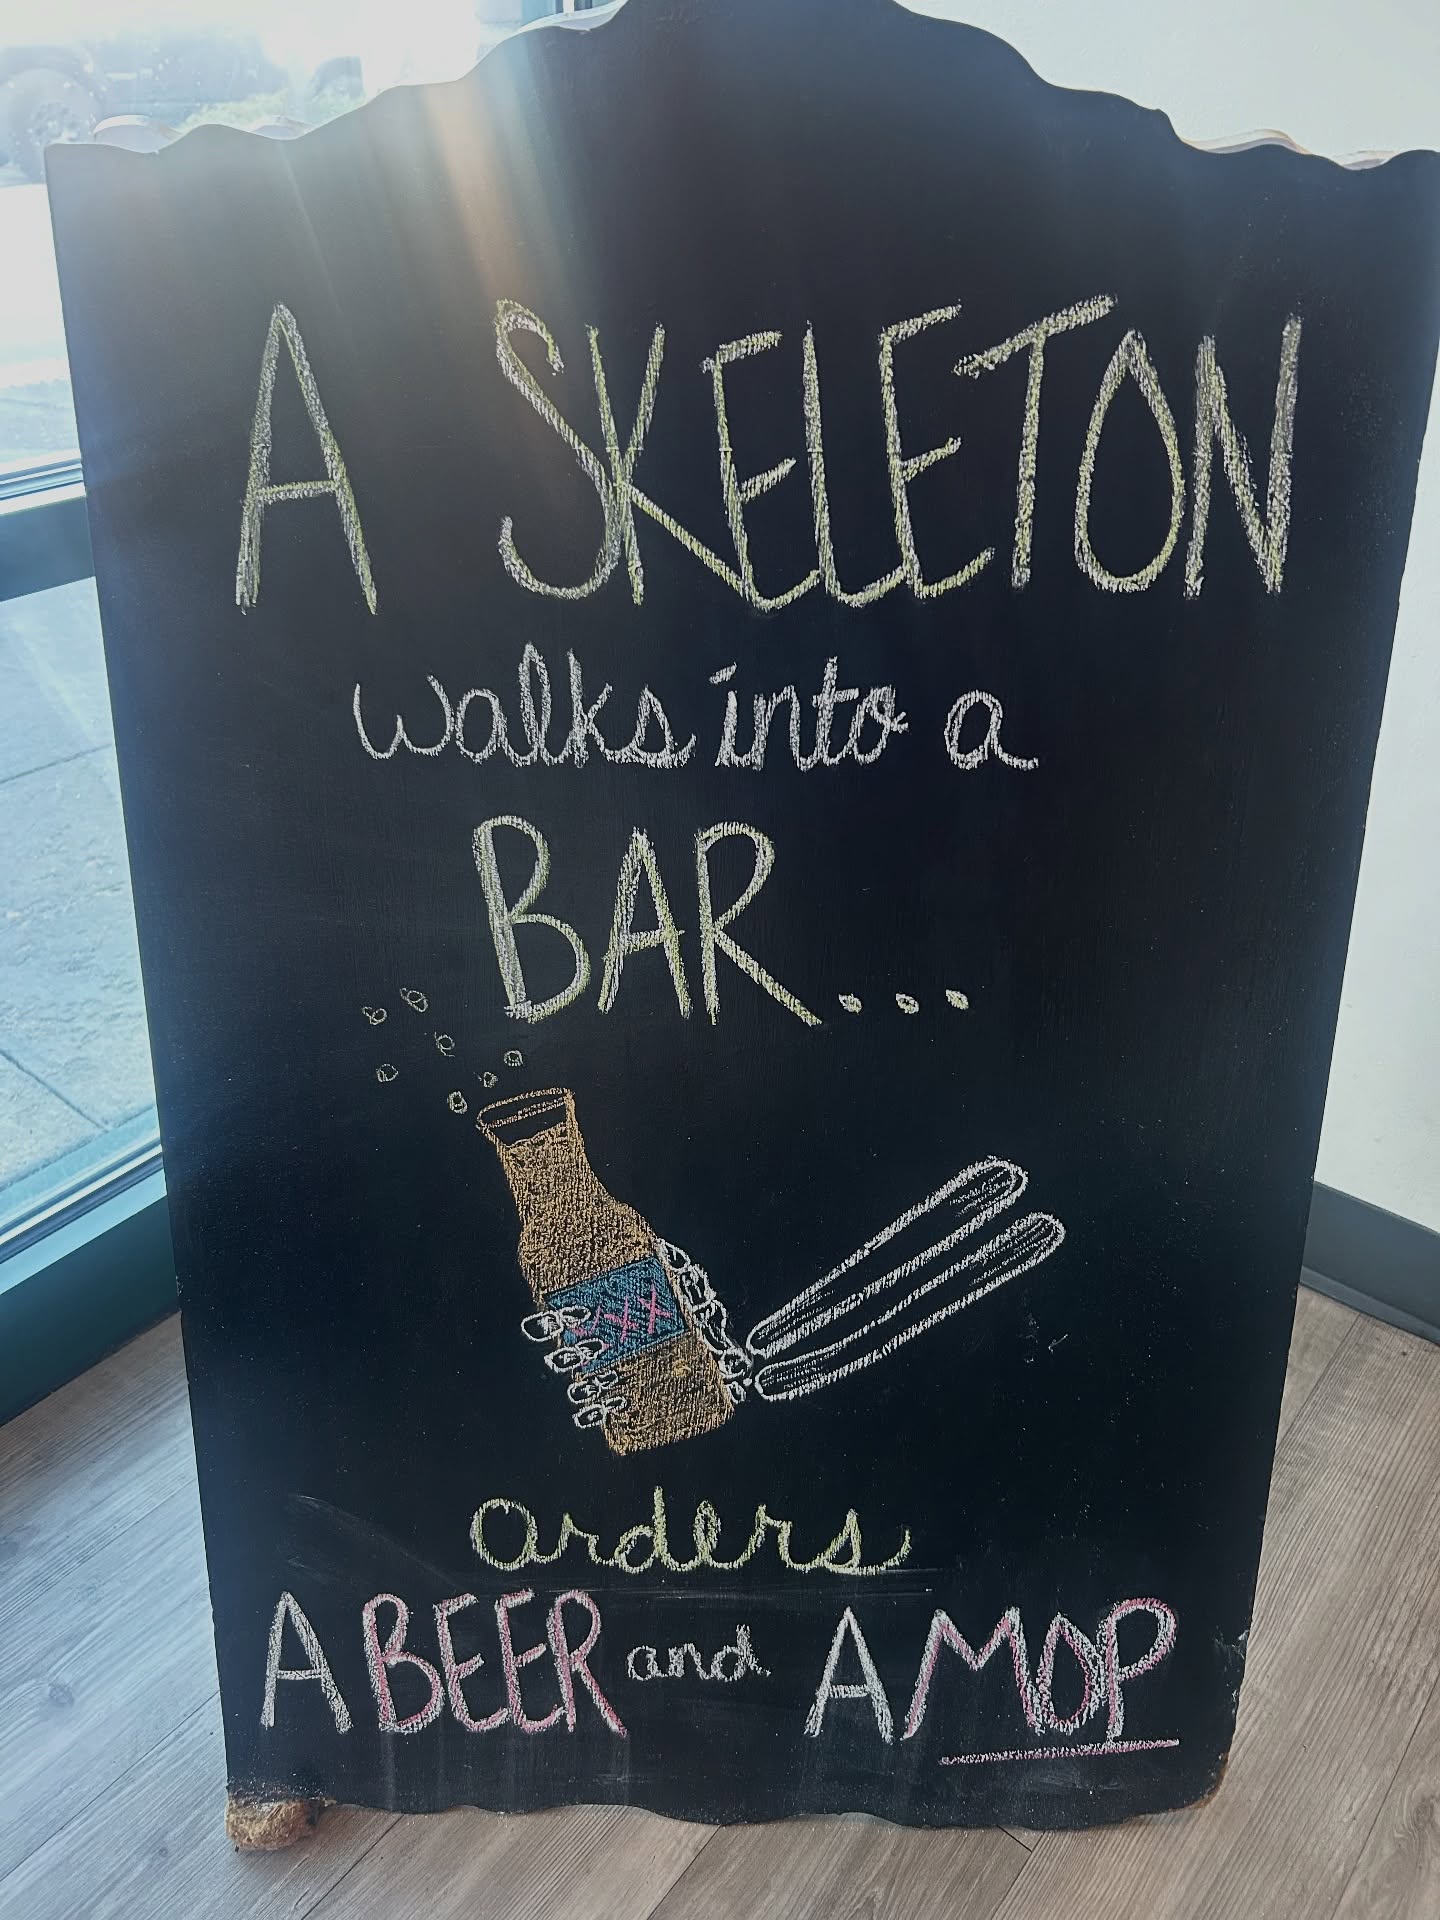 A SKELETON
walks into a
BAR...
XXX
orders
A BEER and A MOP